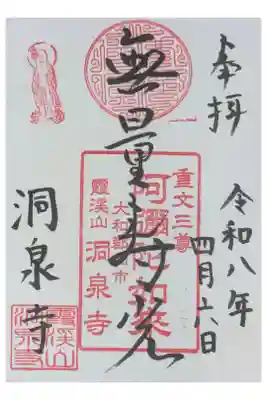 奉拝
令和八年
四月六日
無量寿光
重文三尊
阿彌陀如来
大和郡山市
靈溪山 洞泉寺
洞泉寺
靈溪山
洞泉寺